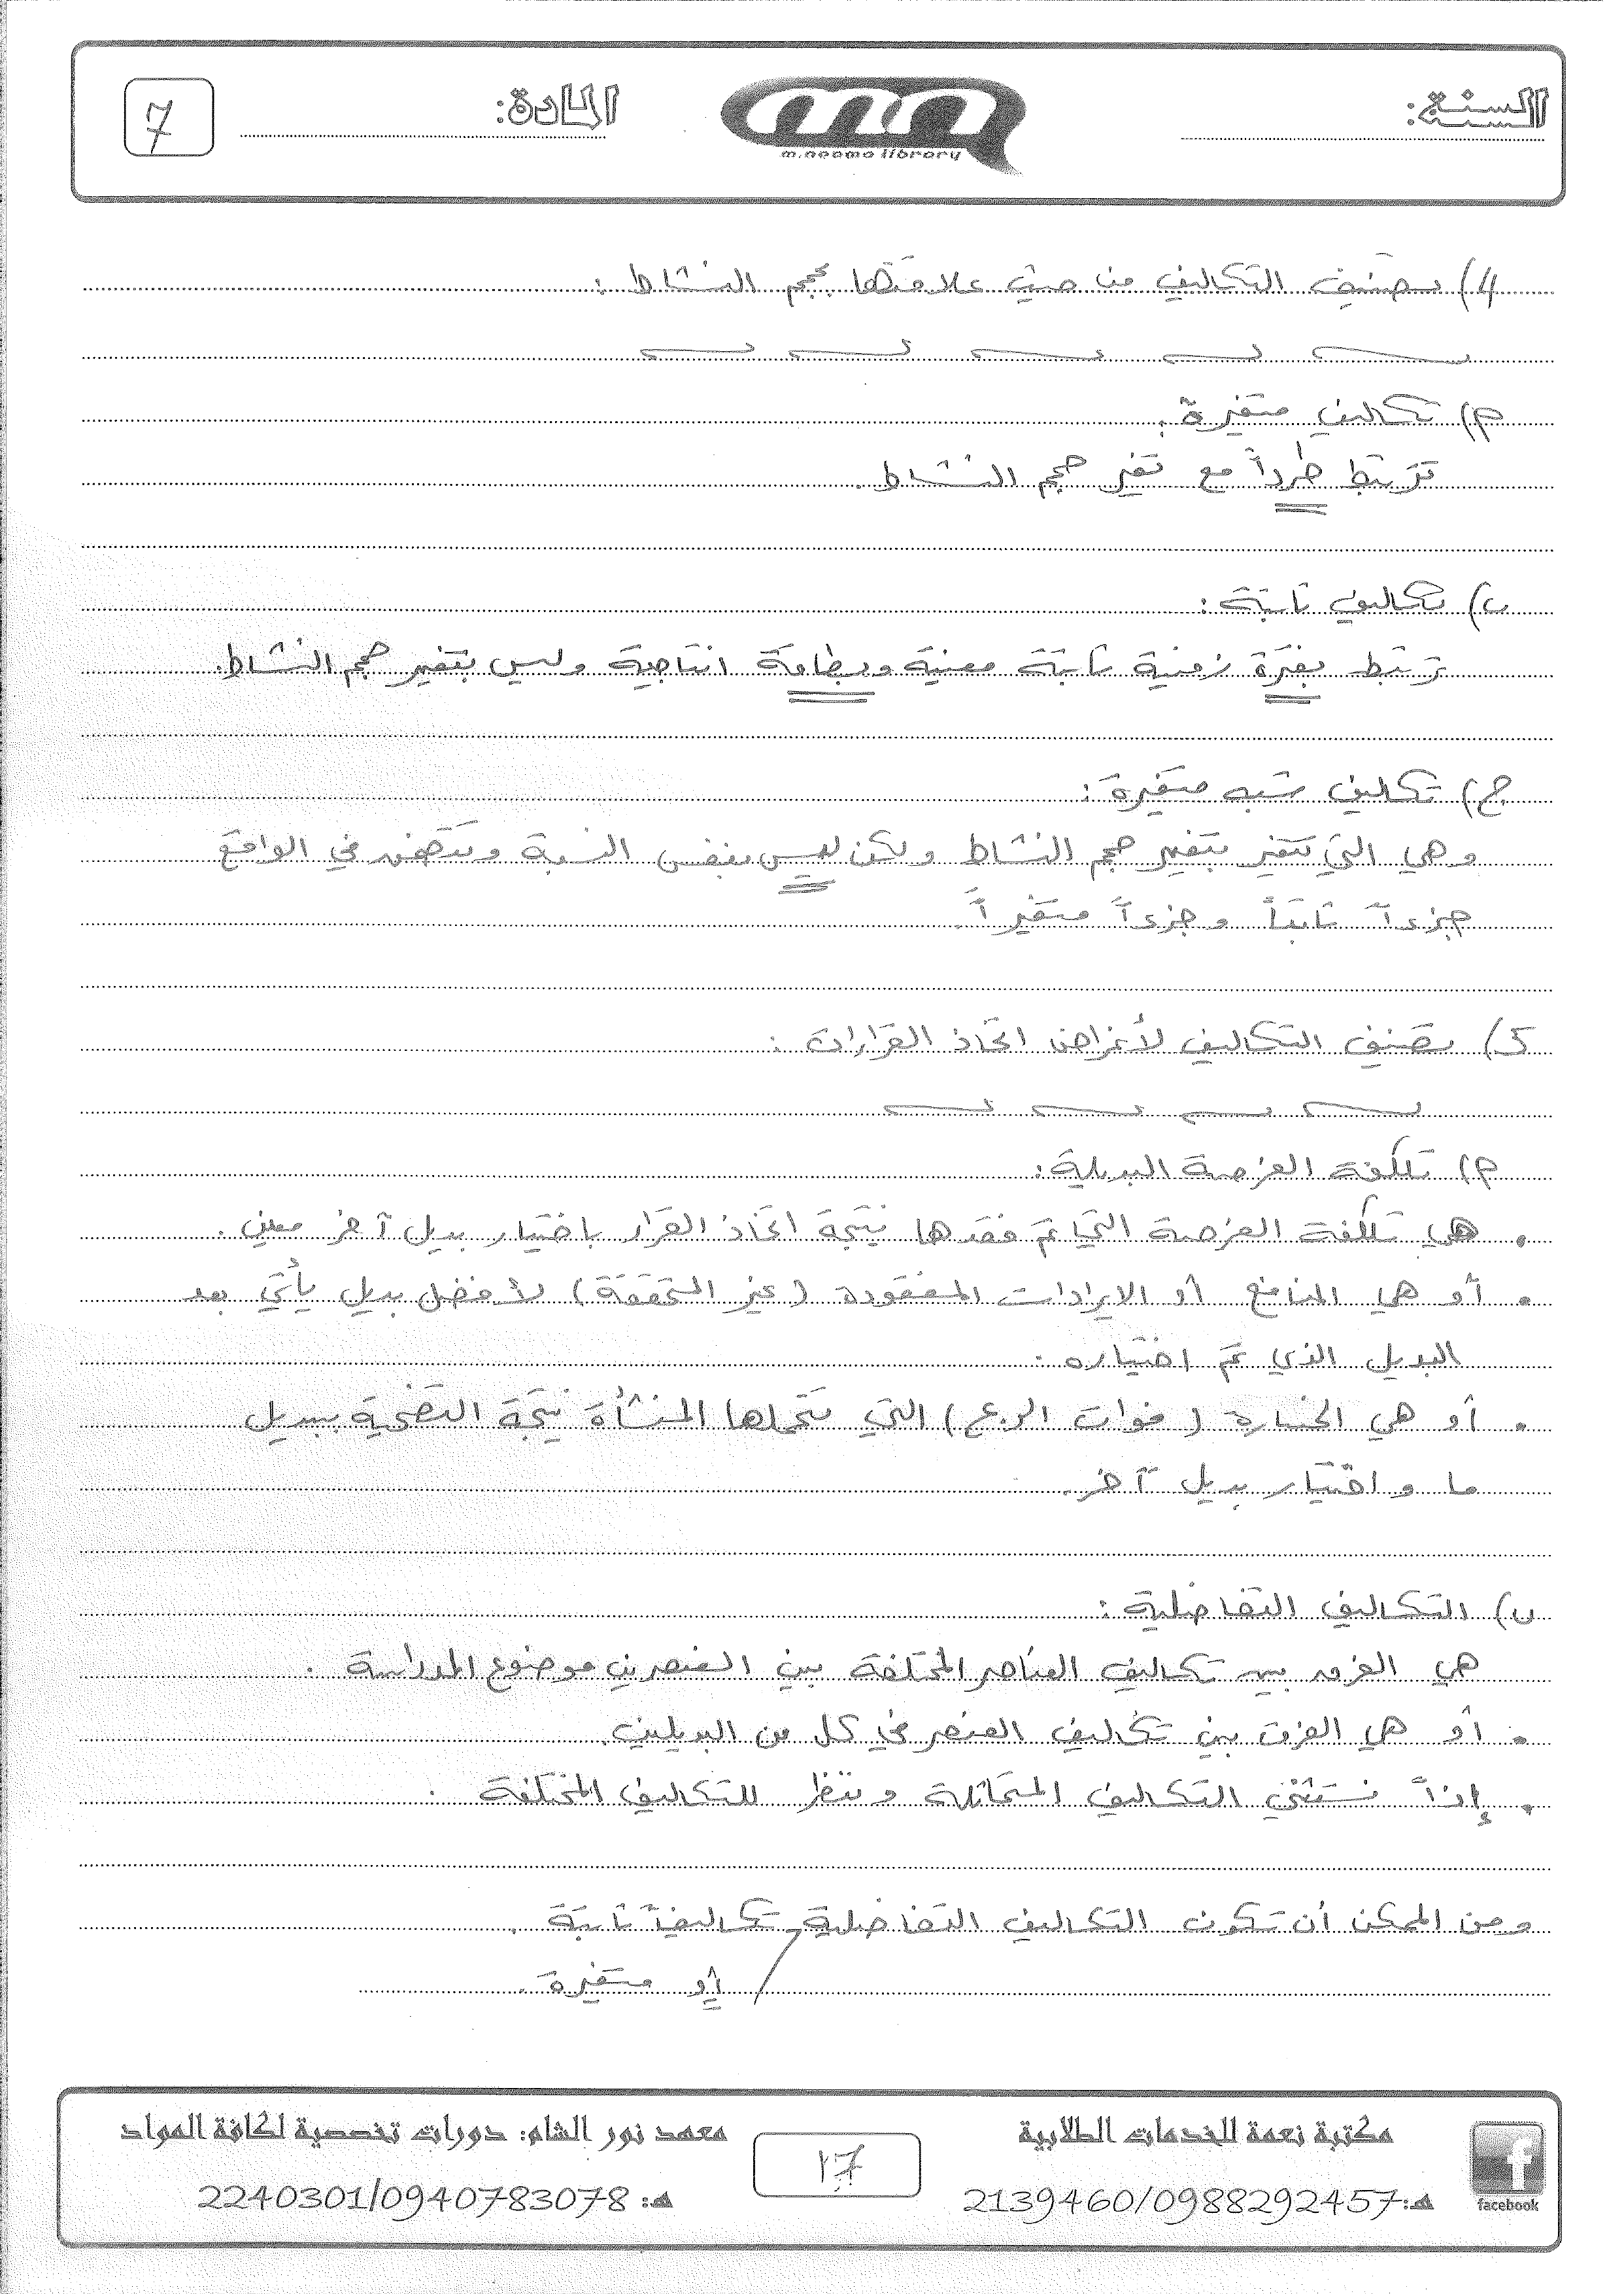 السنة:
m.neama library
المادة:
7
4) تصنيف التكاليف من حيث علاقتها بحجم النشاط :
م) تكاليف متغيرة :
ترتبط طرداً مع تغير حجم النشاط .
ب) تكاليف ثابتة :
ترتبط بفترة زمنية ثابتة معينة وبطاقة انتاجية وليس بتغير حجم النشاط .
ج) تكاليف شبه متغيرة :
وهي التي تتغير بتغير حجم النشاط ولكن ليس بنفس النسبة وتتضمن في الواقع
جزءاً ثابتاً وجزءاً متغيراً .
5) تصنيف التكاليف لأغراض اتخاذ القرارات :
م) تكلفة الفرصة البديلة :
• هي تكلفة الفرصة التي تم فقدها نتيجة اتخاذ القرار باختيار بديل آخر معين .
• أو هي المنافع أو الايرادات المفقودة (غير المتحققة) لأفضل بديل يأتي بعد
البديل الذي تم اختياره .
• أو هي الخسارة (فوات الربح) التي تتحملها المنشأة نتيجة التضحية ببديل
ما واختيار بديل آخر .
ب) التكاليف التفاضلية :
هي الفرق بين تكاليف العناصر المختلفة بين العنصرين موضوع الدراسة .
• أو هي الفرق بين تكاليف العنصر في كل من البديلين .
• إذاً نستثني التكاليف المتماثلة وننظر للتكاليف المختلفة .
ومن الممكن أن تكون التكاليف التفاضلية تكاليفاً ثابتة .
أو متغيرة .
مكتبة نعمة للخدمات الطلابية
هـ: 2139460/0988292457
facebook
17
معهد نور الشام: دورات تخصصية لكافة المواد
هـ: 2240301/0940783078